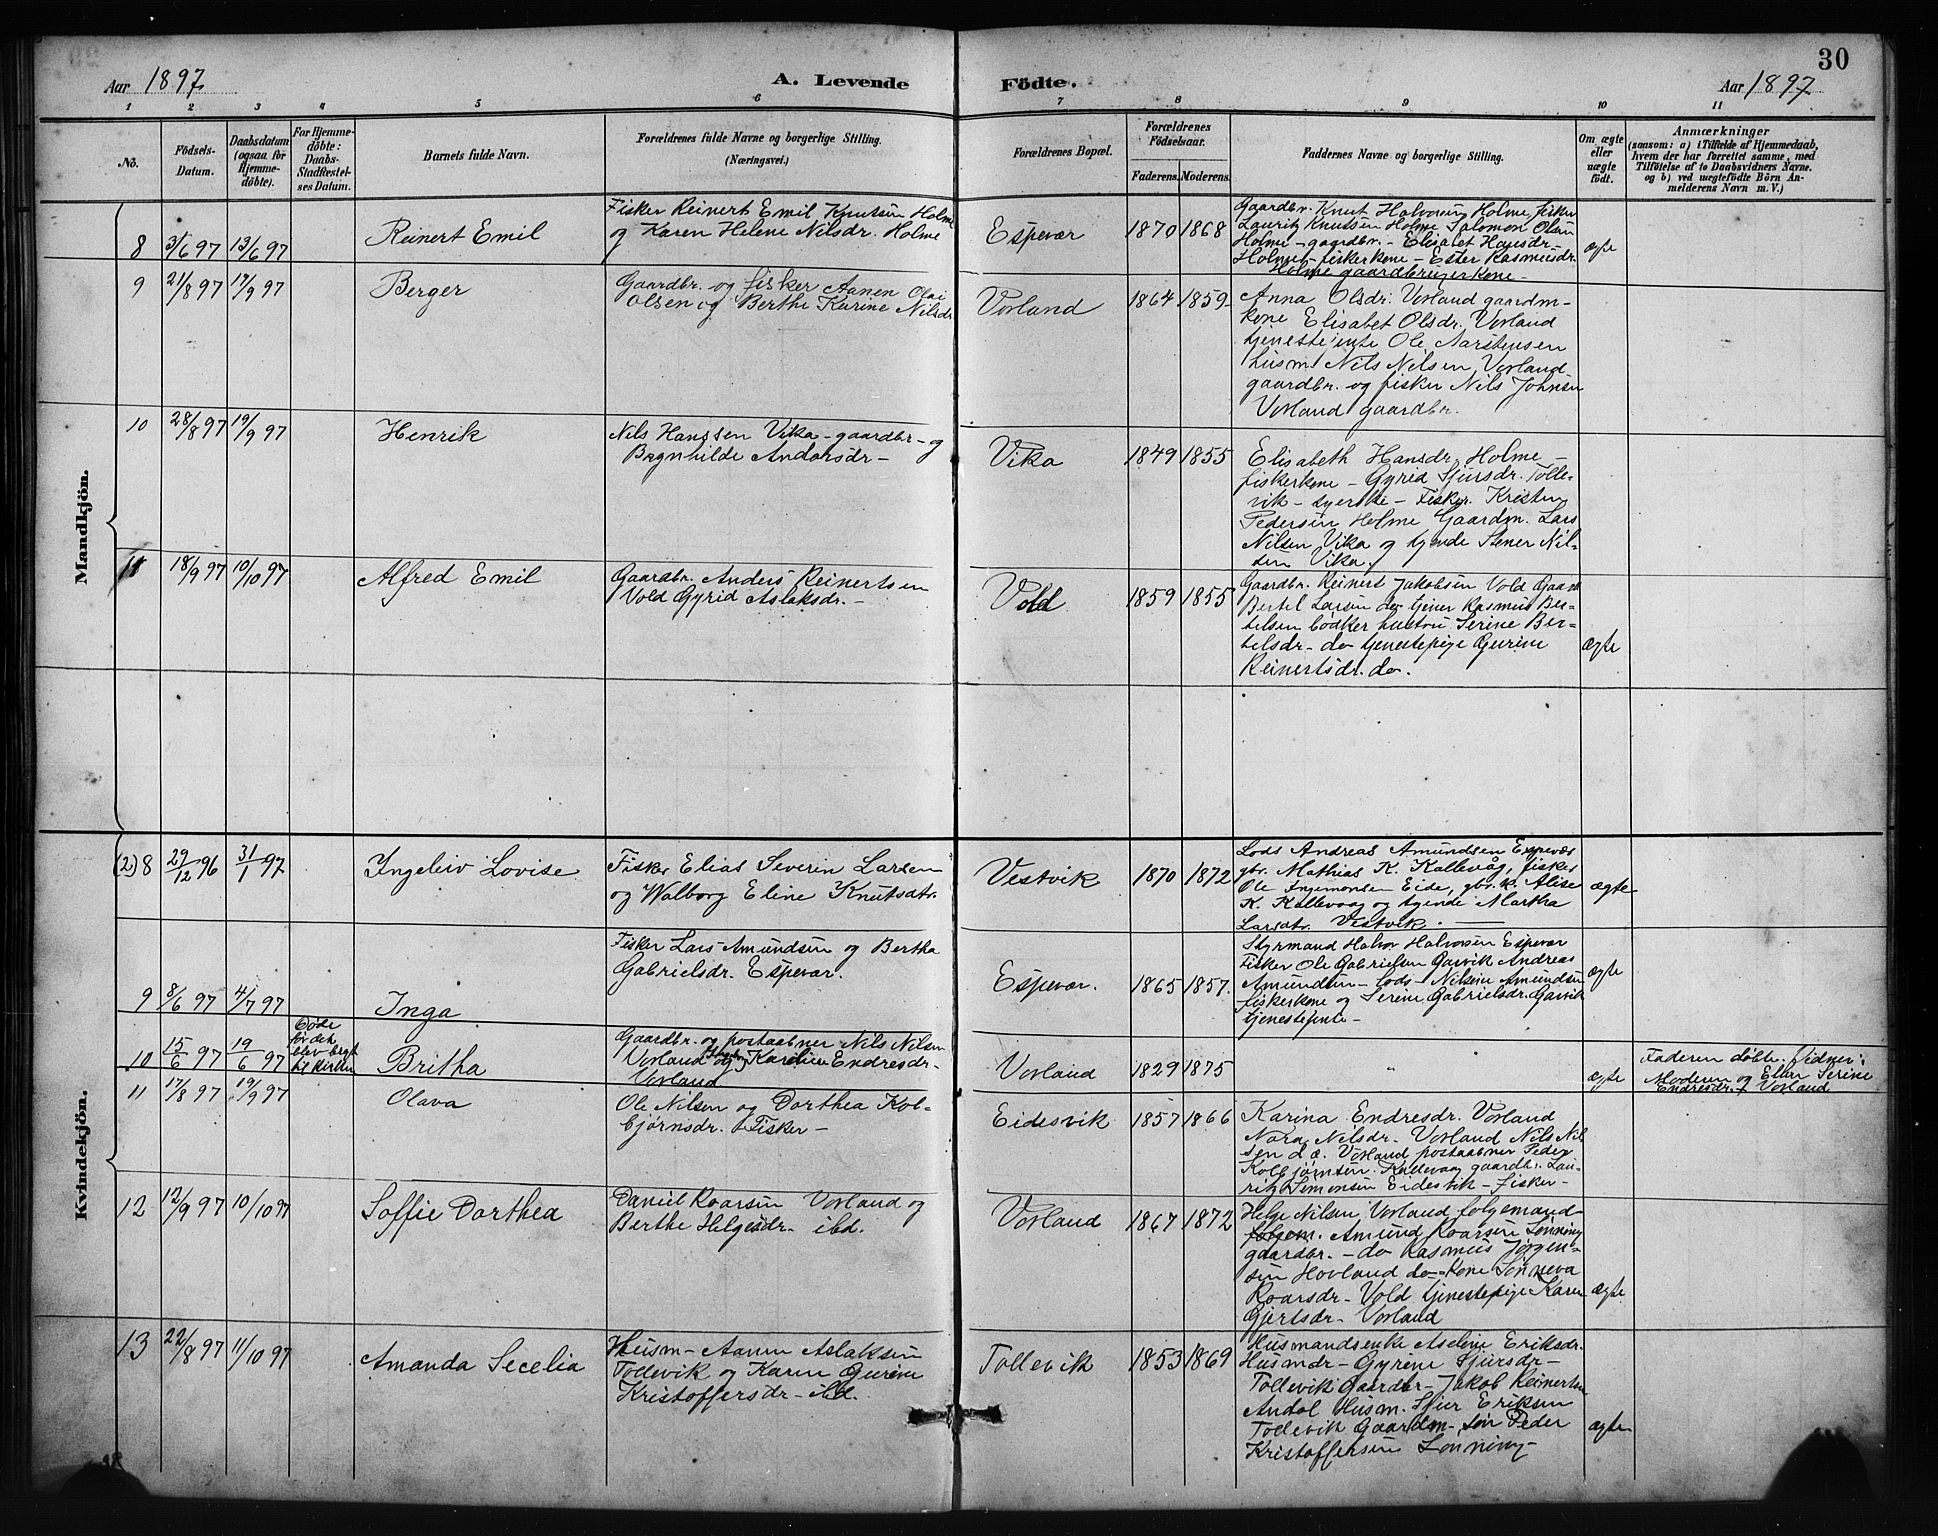 30
Aar 1897.
A. Levende
Födte.
Aar 1897
1 2 3 4 5 6 7 8 9 10 11
No.
Födsels-
Datum.
Daabsdatum
(ogsaa for
Hjemme-
döbte).
For Hjemme-
döbte:
Daabs-
Stadfæstel-
ses Datum.
Barnets fulde Navn.
Forældrenes fulde Navne og borgerlige Stilling.
(Næringsvei.)
Forældrenes Bopæl.
Forældrenes
Födselsaar.
Faderens. Moderens.
Faddernes Navne og borgerlige Stilling.
Om ægte
eller
uægte
født.
Anmærkninger
(saasom: a) i Tilfælde af Hjemmedaab,
hvem der har forrettet samme, med
Tilföielse af to Daabsvidners Navne.
og b) ved uægtefödte Börn An-
melderens Navn m. V.)
Mandkjön.
8 3/6 97 13/6 97 Reinert Emil
Fisker Reinert Emil Knutsen Holme
og Karen Helene Nilsdr. Holme
Espevær 1870 1868
Gaardbr. Knut Halvorsen Holme, fisker
Lauritz Knutsen Holme Salomon Olsen
Holme - gaardbr. - Elisabet Hansdr -
Holme - fiskerkone - Ester Rasmusdr.
Holme gaardbrugerkone -
ægte
9 21/8 97 17/9 97 Berger
Gaardbr. og fisker Aanen Olai
Olsen og Berthe Karine Nilsdr.
Vorland 1864 1859
Anna Olsdr. Vorland gaardm-
kone Elisabet Olsdr. Vorland
tjenestejente Ole Aarstensen
husm Nils Nilsen Vorland
gaardbr. og fisker Nils Johnsen
Vorland gaardbr.
10 28/8 97 19/9 97 Henrik
Nils Hanssen Vika - gaardbr - og
Brynhilde Andersdr -
Vika 1849 1855
Elisabeth Hansdr. Holme -
fiskerkone - Gyrid Sjursdr. Tolle-
vik - syerske - Fisker Kristen
Pedersen Holme Gaardm. Lars
Nilsen Vika og tyende Stener Nil-
sen Vika.
11 18/9 97 10/10 97 Alfred Emil
Gaardbr. Anders Reinertsen
Vold Gyrid Aslaksdr. -
Vold 1859 1855
Gaardbr. Reinert Jakobsen Vold Gaardb
Bertel Larsen do tjener Rasmus Ber-
telsen bødker hustru Serine Ber-
telsdr - do tjenestepige Gurine
Reinertsdr. do.
ægte
Kvindekjön.
(2) 8 29/12 96 31/1 97 Ingeleiv Lovise
Fisker Elias Severin Larsen
og Walborg Eline Knutsdtr.
Vestvik 1870 1872
Lods Andreas Amundsen Espevær
gbr. Mathias K. Kallevåg, fisker
Ole Ingemonsen Eide, gbr. k. Alise
K. Kallevaag og tyende Martha
Larsdtr. Vestvik.
ægte
9 8/6 97 4/7 97 Inga
Fisker Lars Amundsen og Bertha
Gabrielsdr. Espevær.
Espevær. 1865 1857.
Styrmand Halvor Halvorsen Espevær
Fisker Ole Gabrielsen Gasvik Andreas
Amundsen - lods - Nilsine Amundsen
fiskerkone og Serine Gabrielsdr. Gasvik
tjenestejente -
ægte
10 15/6 97 19/6 97
Døde
før det
blev bragt
til kirken
Britha
Gaardbr. og postaabner Nils Nilsen
Vorland og Karoline Endresdr -
Vorland
Vorland 1829 1875 "
ægte
Faderen døbte. Vidner:
Moderen og Elen Serine
Endresdr. Vorland
11 17/8 97 19/9 97 Olava
Ole Nilsen og Dorthea Kol-
bjørnsdr. Fisker -
Eidesvik 1857 1866
Karina Endresdr. Vorland
Nora Nilsdr. Vorland Nils Nil
sen d. æ. Vorland postaabner Peder
Kolbjørnsen Kallevaag gaardbr. Lau-
ritz Simonsen Eidesvik - fisker -
12 12/9 97 10/10 97 Soffie Dorthea
Daniel Roarsen Vorland og
Berthe Helgesdr - ibd.
Vorland 1867 1872
Helge Nilsen Vorland følgemand
følgem. Amund Roarsen Lønning
gaardbr. - do Rasmus Jørgen-
sen Hovland do - kone Sønneva
Roarsdr - Vold tjenestepige Karen
Gjertsdr - Vorland
ægte
13 22/8 97 11/10 97 Amanda Secelia
Husm - Aanen Aslaksen
Tollevik og Karen Gurine
Kristoffersdr - ibd.
Tollevik 1853 1869
Husmandsenke Aselene Eriksdr.
Husmdr - Gyrine Sjursdr -
Tollevik Gaardbr - Jakob Reinertsen
Andal Husm. Sjur Eriksen
Tollevik Gaardm - søn Peder
Kristoffersen Lønning -
ægte